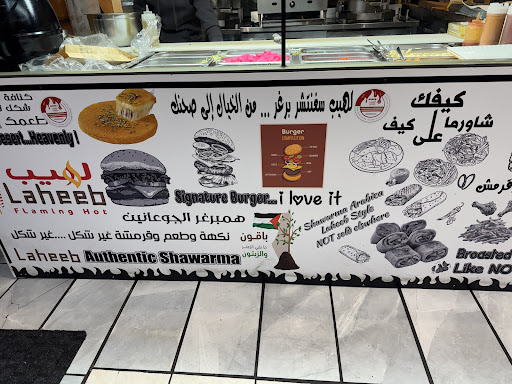 كنافة
شكل
طعمك
Desert...Heavenly!
لهيب سغنتشر برغر ... من الخيال إلى صحنك
كيفك
شاورما
على كيف
Burger
لهيب
Laheeb
Flaming Hot
Signature Burger...i love it
همبرغر الجوعانين
نكهة وطعم وقرمشة غير شكل ....غير شكل
Laheeb Authentic Shawarma
باقون
والزيتون
Shawarma Arabica
Laheeb Style
NOT sold elsewhere
قرمش
Broasted
Like NO